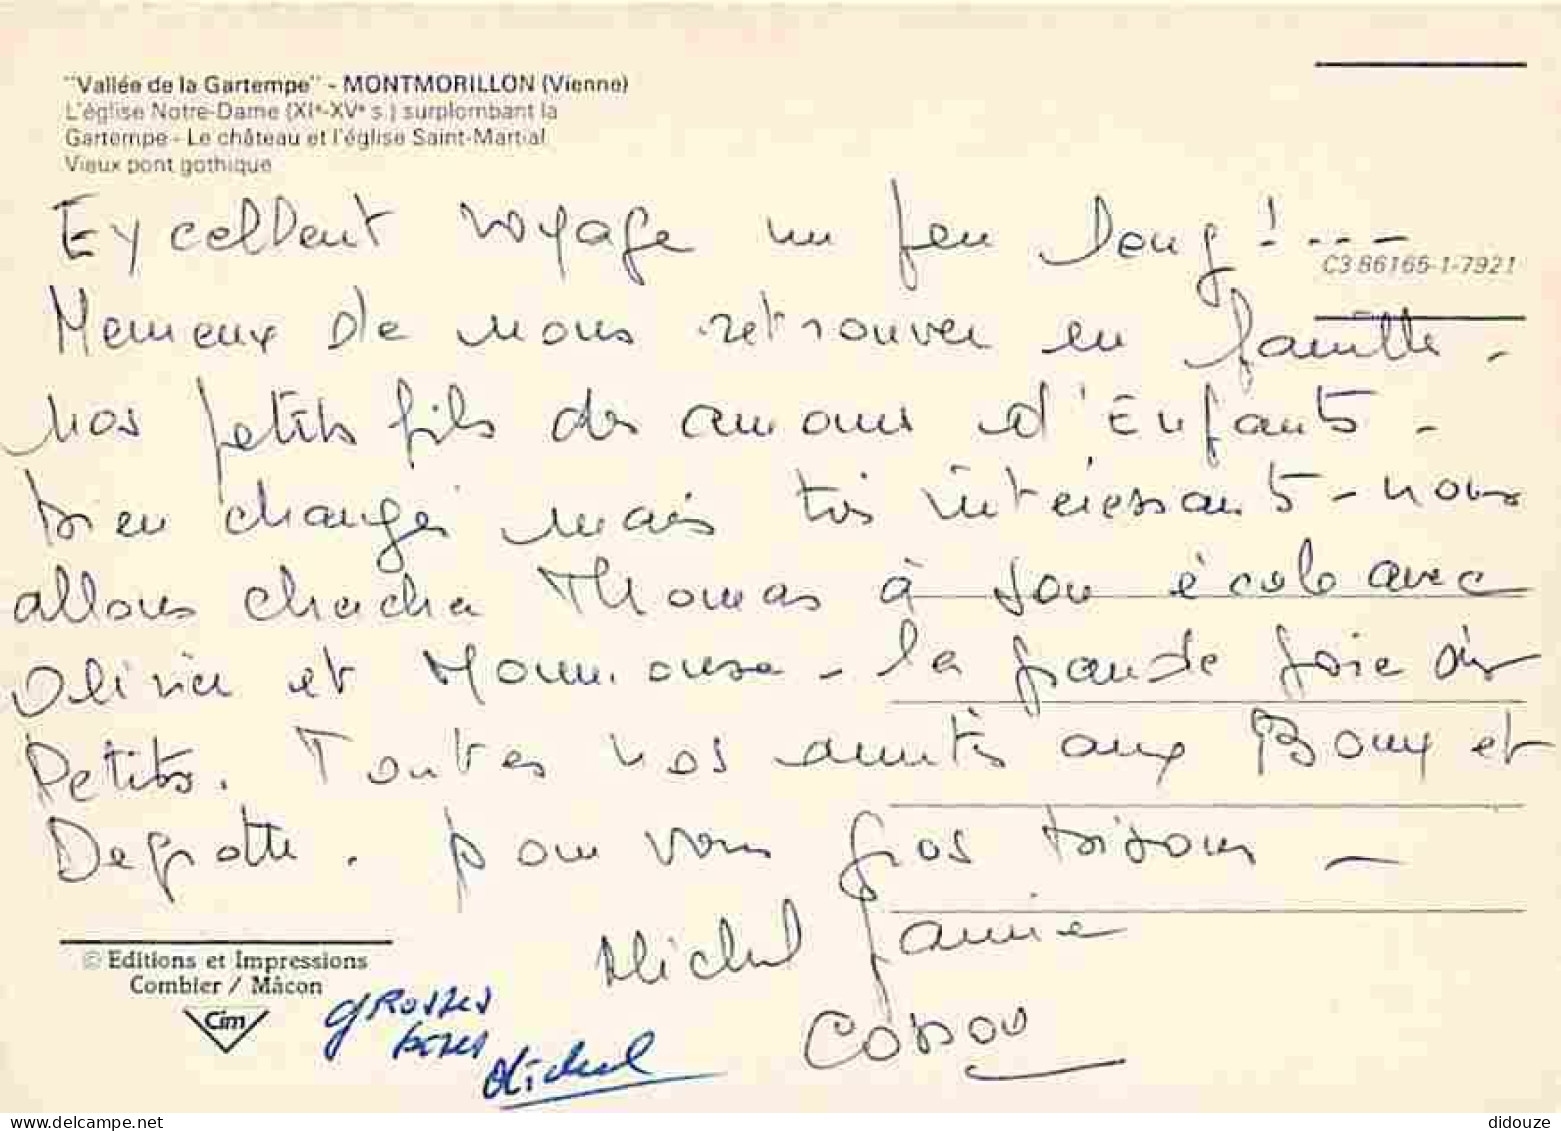 "Vallée de la Gartempe" - MONTMORILLON (Vienne)
L'église Notre-Dame (XIe-XVe s.) surplombant la
Gartempe - Le château et l'église Saint-Martial
Vieux pont gothique
C3 86165-1-7921
Excellent voyage un peu long ! ...
Heureux de nous retrouver en famille -
nos petits fils des amours d'Enfants -
bien changés mais très intéressants - nous
allons chercher Thomas à son école avec
Olivier et - la grande joie des
Petits. Toutes nos amitiés aux Boux et
Degrotte. pour vous gros bisous -
Michel Janine
Cosson
© Editions et Impressions
Combier / Mâcon
Cim
GROSSES
bises
Michel
didouze